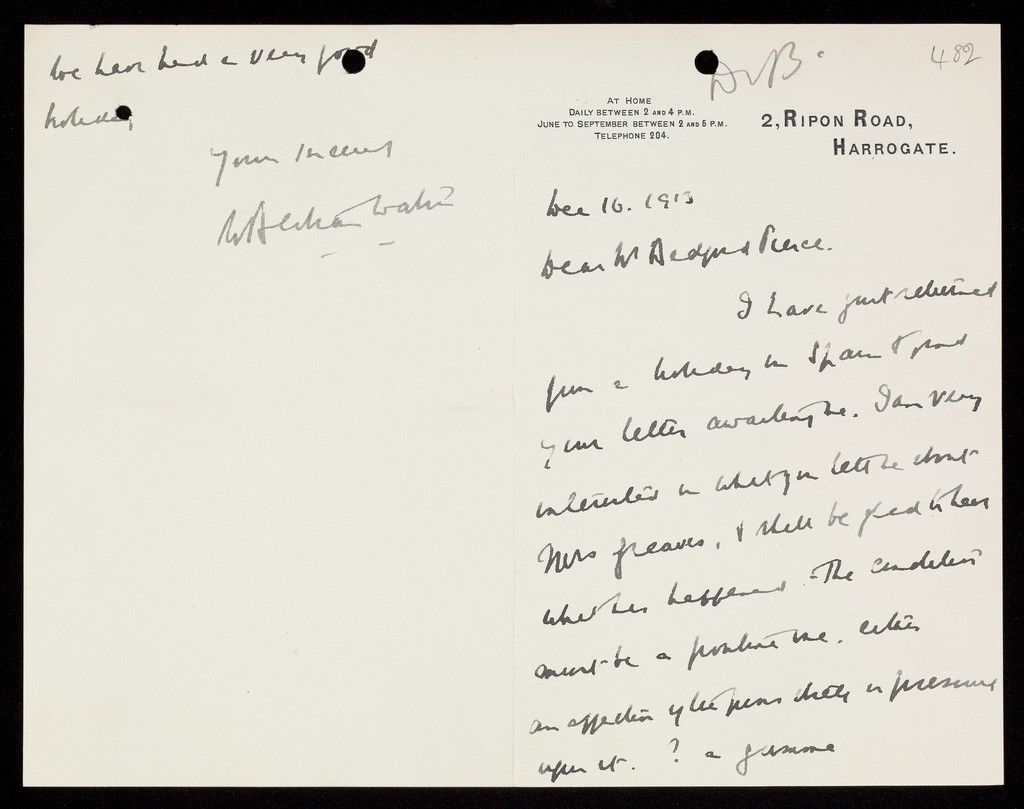 We have had a very good
holiday
Yours sincerely
Dr B.
482
AT HOME
DAILY BETWEEN 2 AND 4 P.M.
JUNE TO SEPTEMBER BETWEEN 2 AND 5 P.M.
TELEPHONE 204.
2, RIPON ROAD,
HARROGATE.
Dec 16. 1913
Dear Dr Bedford Pierce.
I have just returned
from a holiday in Spain & found
your letter awaiting me. I am very
interested in what you tell me about
Mrs Greaves, & shall be glad to hear
what has happened. The condition
must be a pontine one. either
an affection of the pons itself or pressure
upon it. ? a gumma